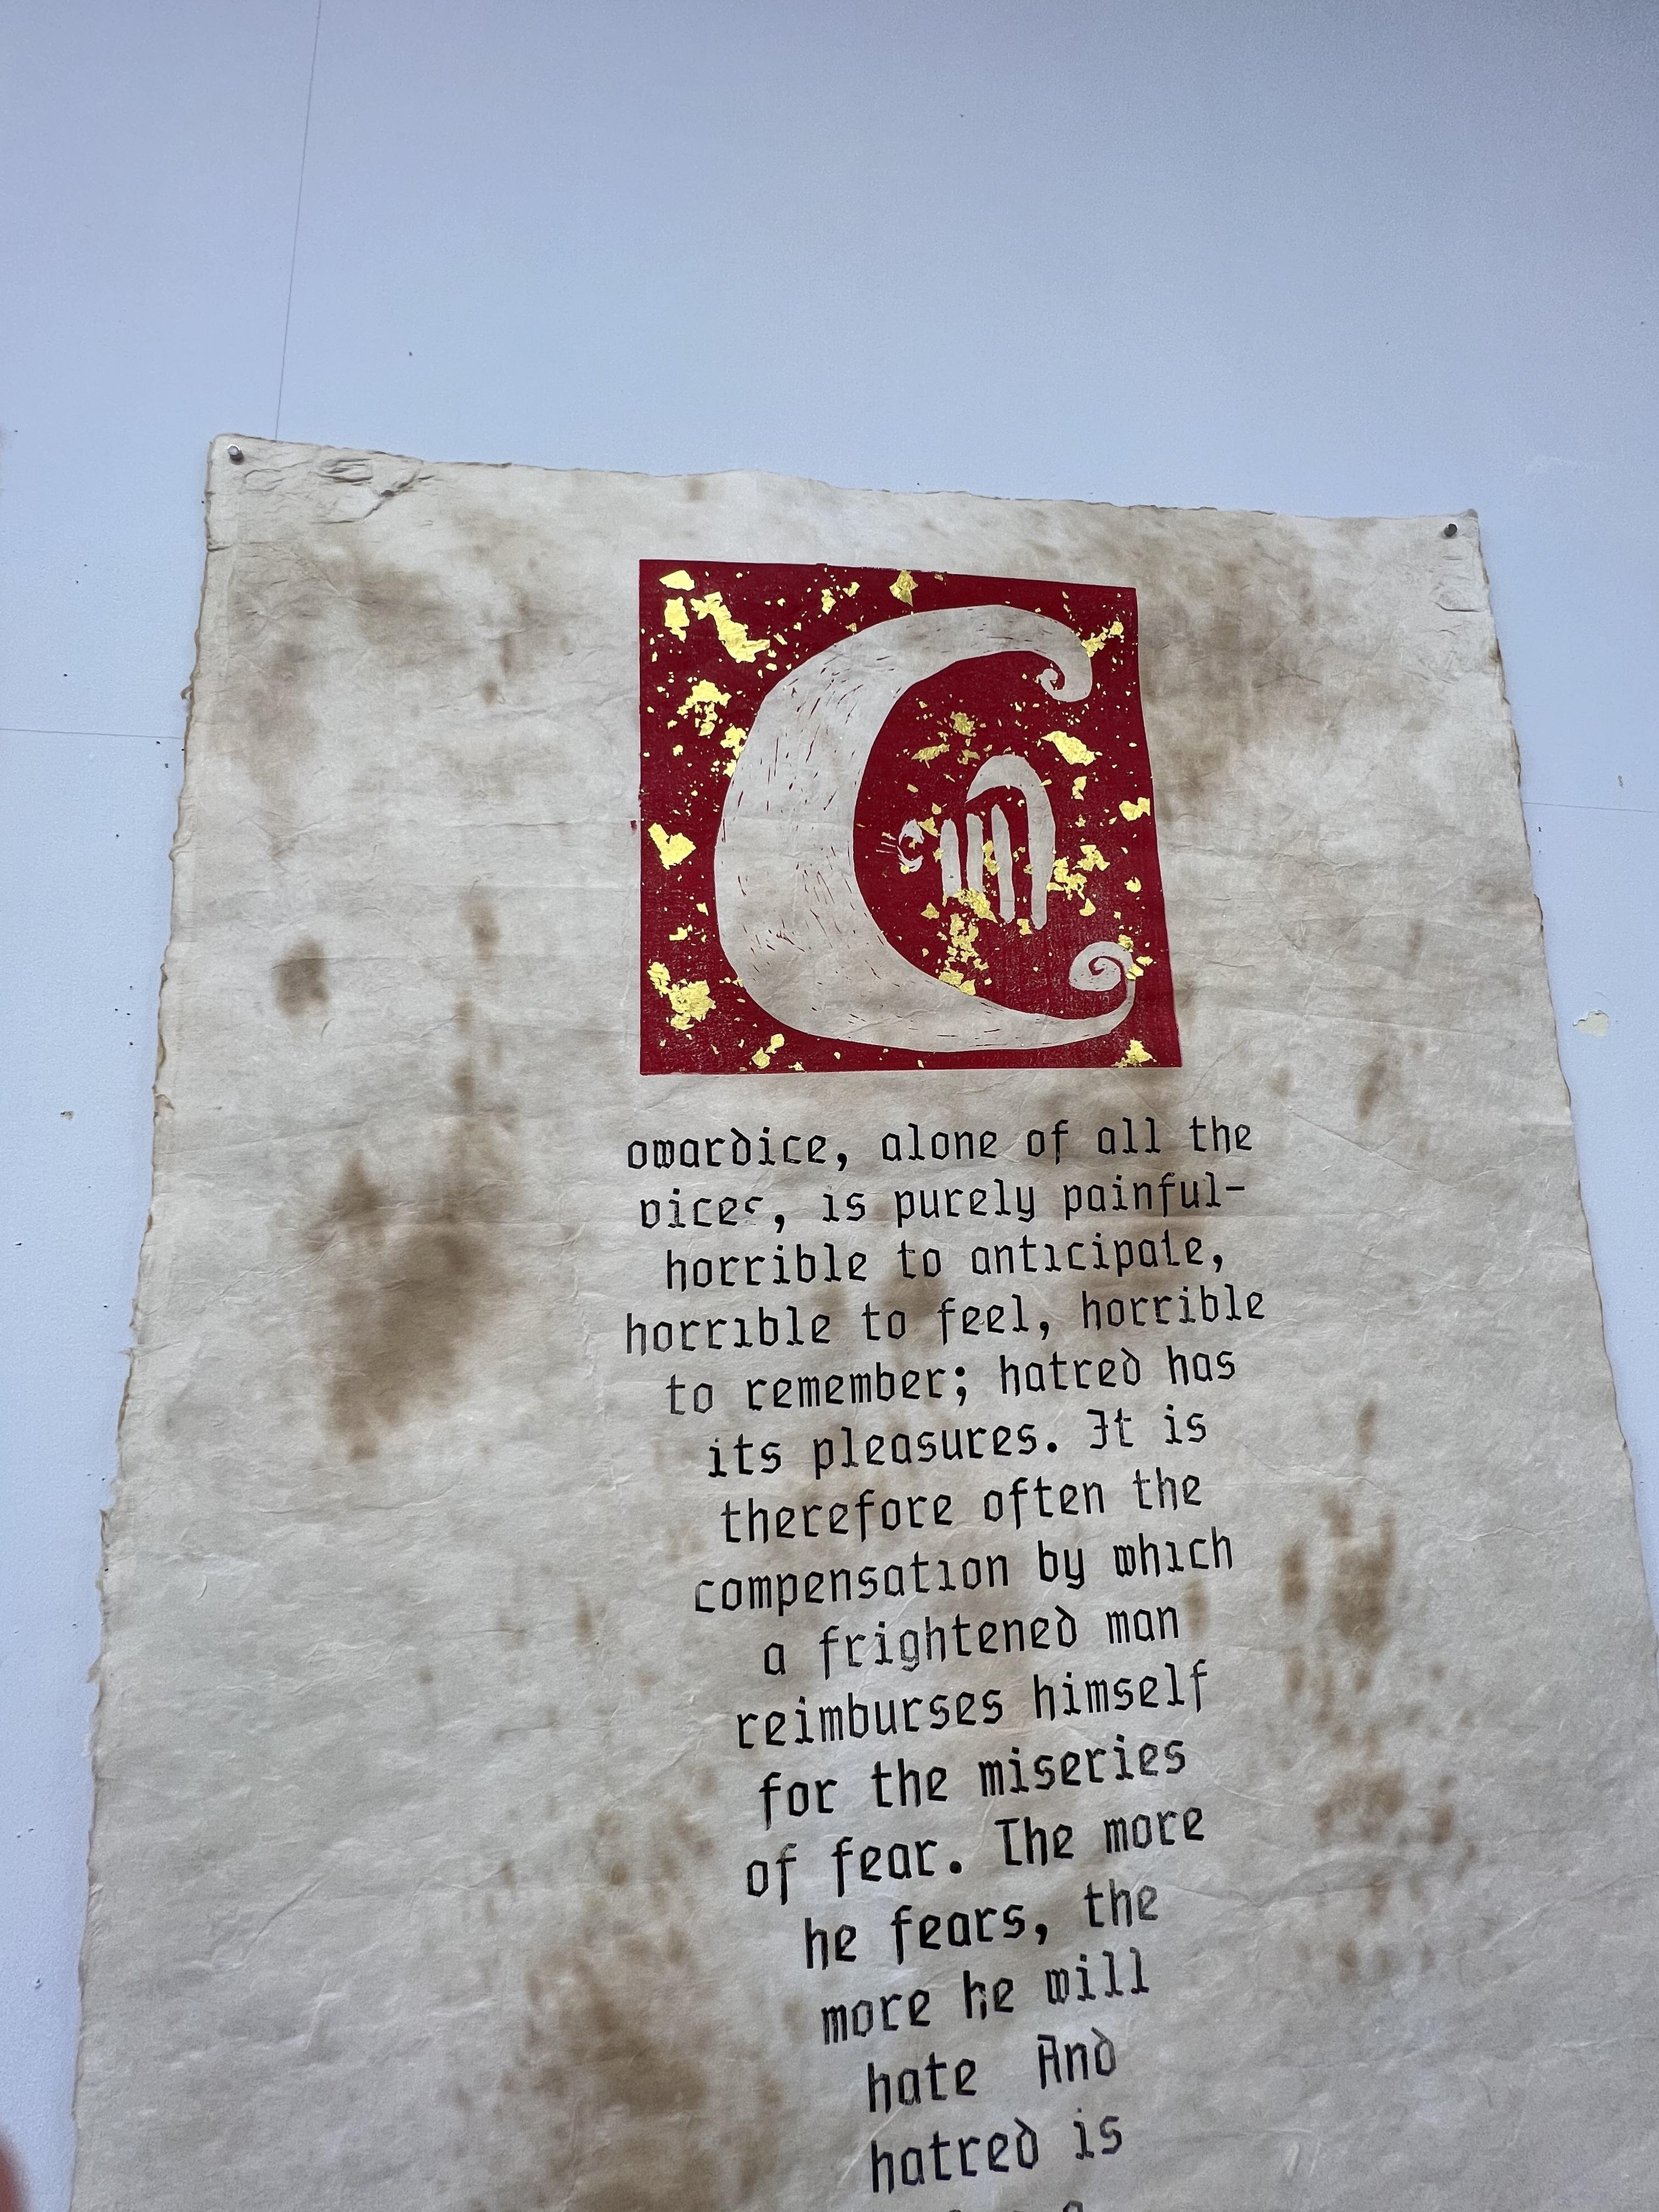 C
omardice, alone of all the
vices, is purely painful-
horrible to anticipate,
horrible to feel, horrible
to remember; hatred has
its pleasures. It is
therefore often the
compensation by which
a frightened man
reimburses himself
for the miseries
of fear. The more
he fears, the
more he will
hate And
hatred is